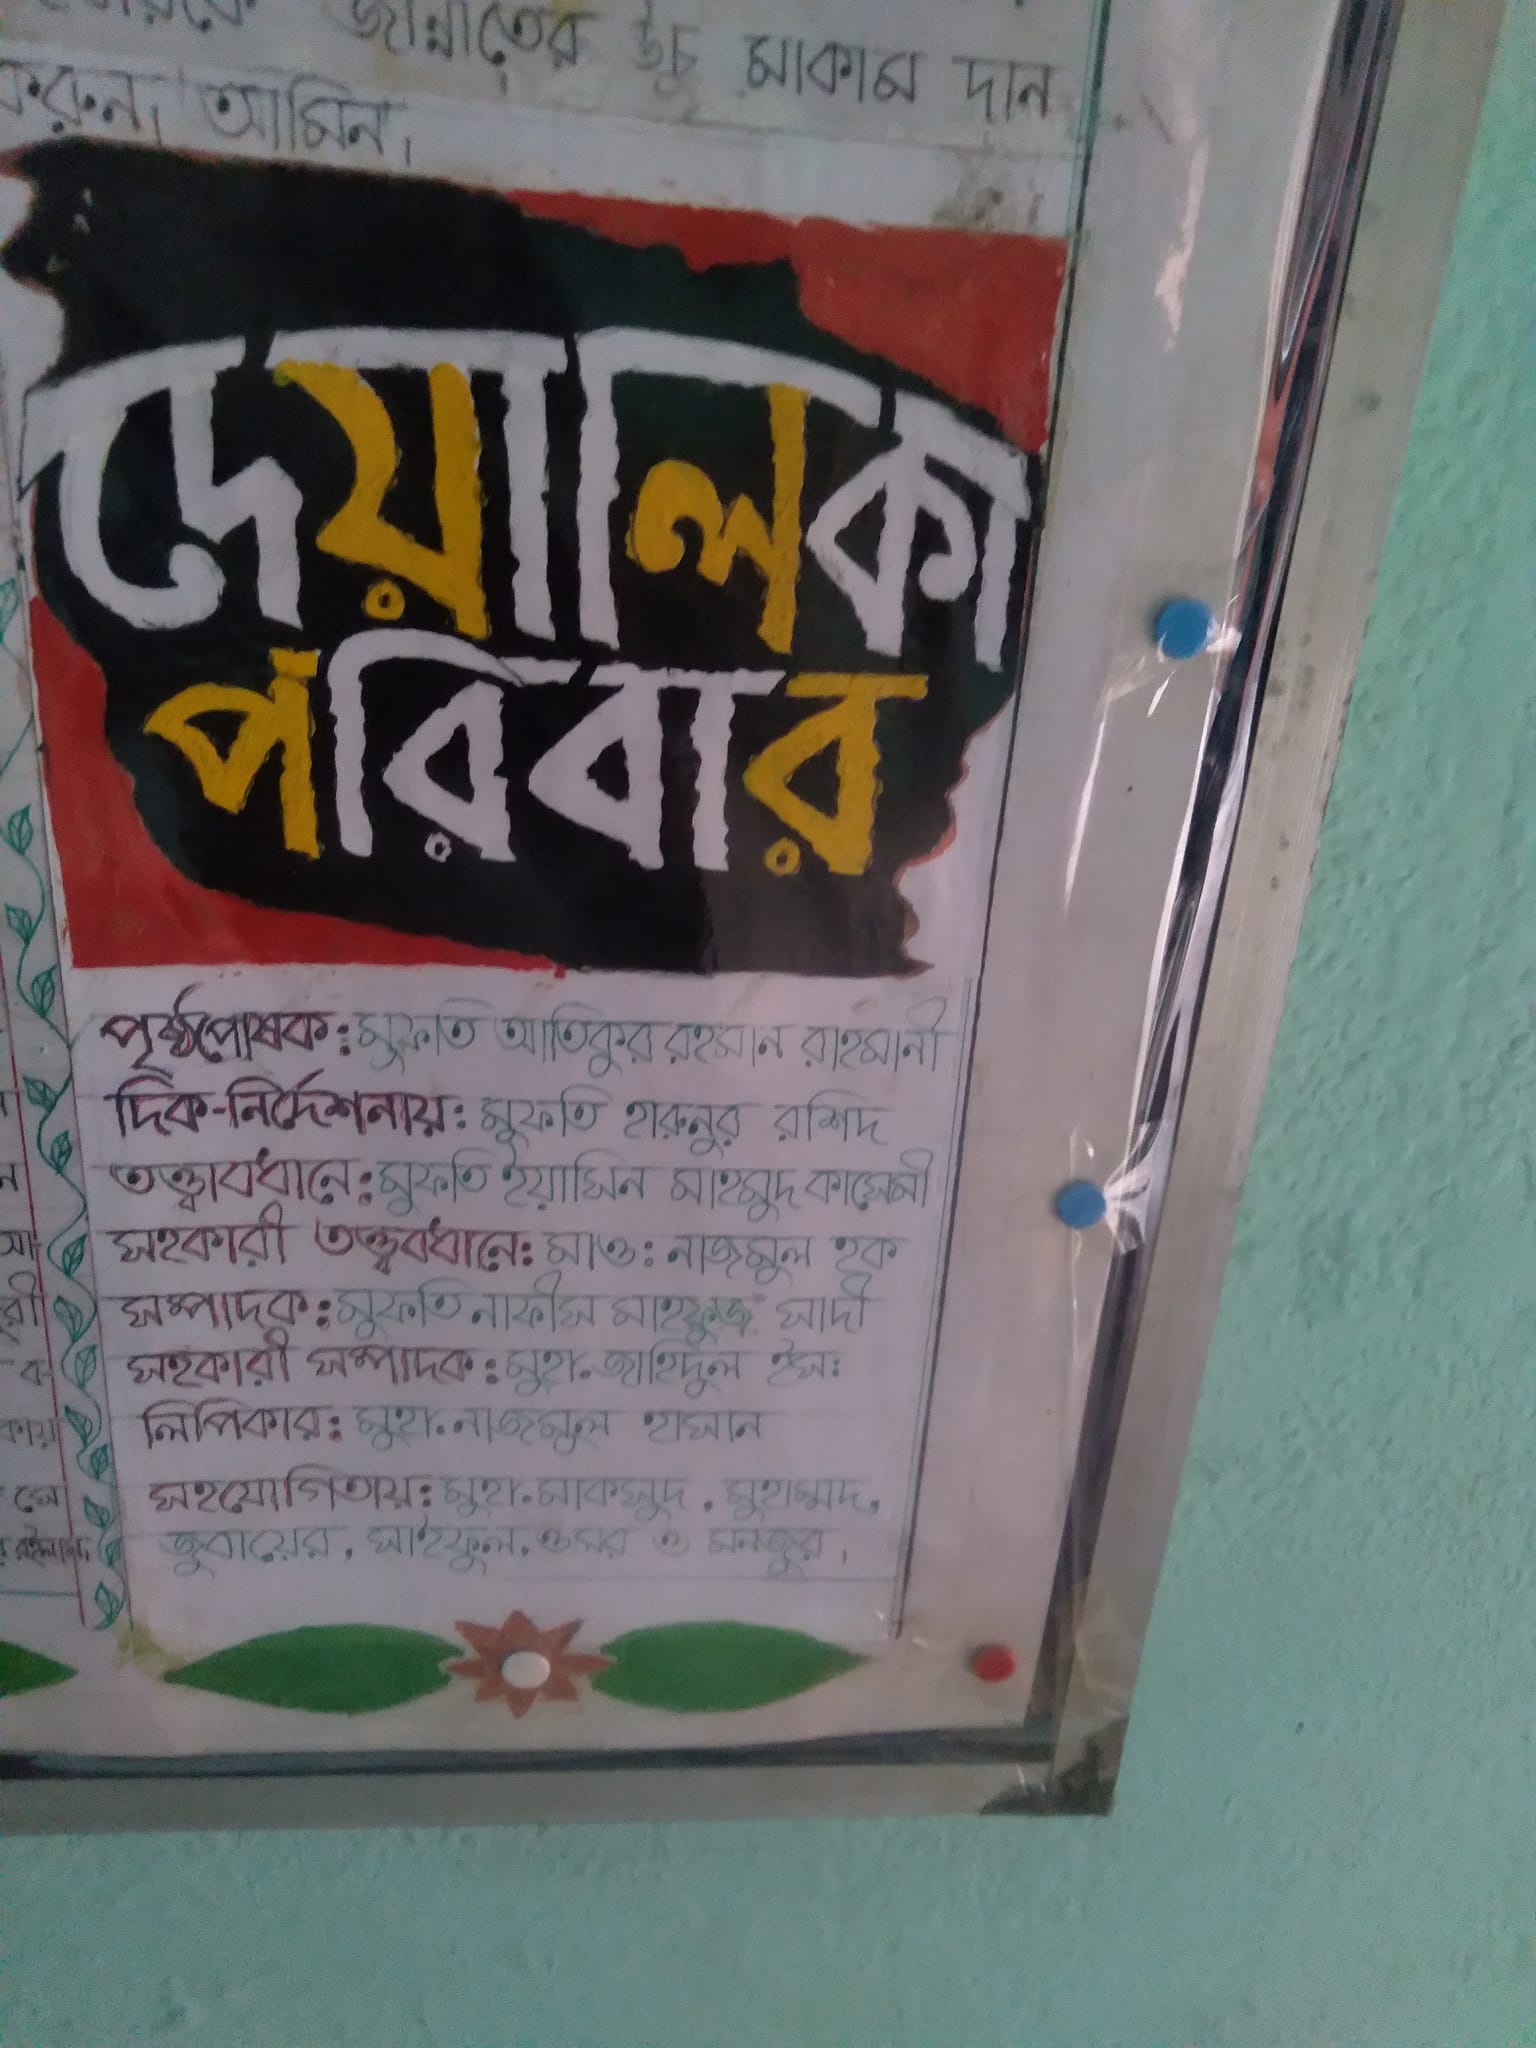 জান্নাতের উঁচু মাকাম দান
করুন। আমিন।
দেয়ালিকা
পরিবার
পৃষ্ঠপোষক: মুফতি আতিকুর রহমান রাহমানী
দিক-নির্দেশনায়: মুফতি হারুনুর রশিদ
তত্ত্বাবধানে: মুফতি ইয়াসিন মাহমুদ কাসেমী
সহকারী তত্ত্ববধানে: মাও: নাজমুল হক
সম্পাদক: মুফতি নাফীস মাহফুজ সাদী
সহকারী সম্পাদক: মুহা. জাহিদুল ইস:
লিপিকার: মুহা. নাজমুল হাসান
সহযোগিতায়: মুহা. মাকসুদ, মুহাম্মদ,
জুবায়ের, সাইফুল, ওমর ও মনজুর।